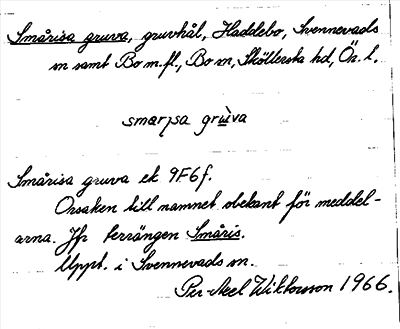 Smårisa gruva, gruvhål, Haddebo, Svennevads
sn samt Bo m.fl., Bo sn, Sköllersta hd, Ör. l.
smarɩsa grùva
Smårisa gruva ek 9F6f.
Orsaken till namnet obekant för meddel-
arna. Jfr terrängen Småris.
Uppt. i Svennevads sn.
Per-Axel Wiktorsson 1966.